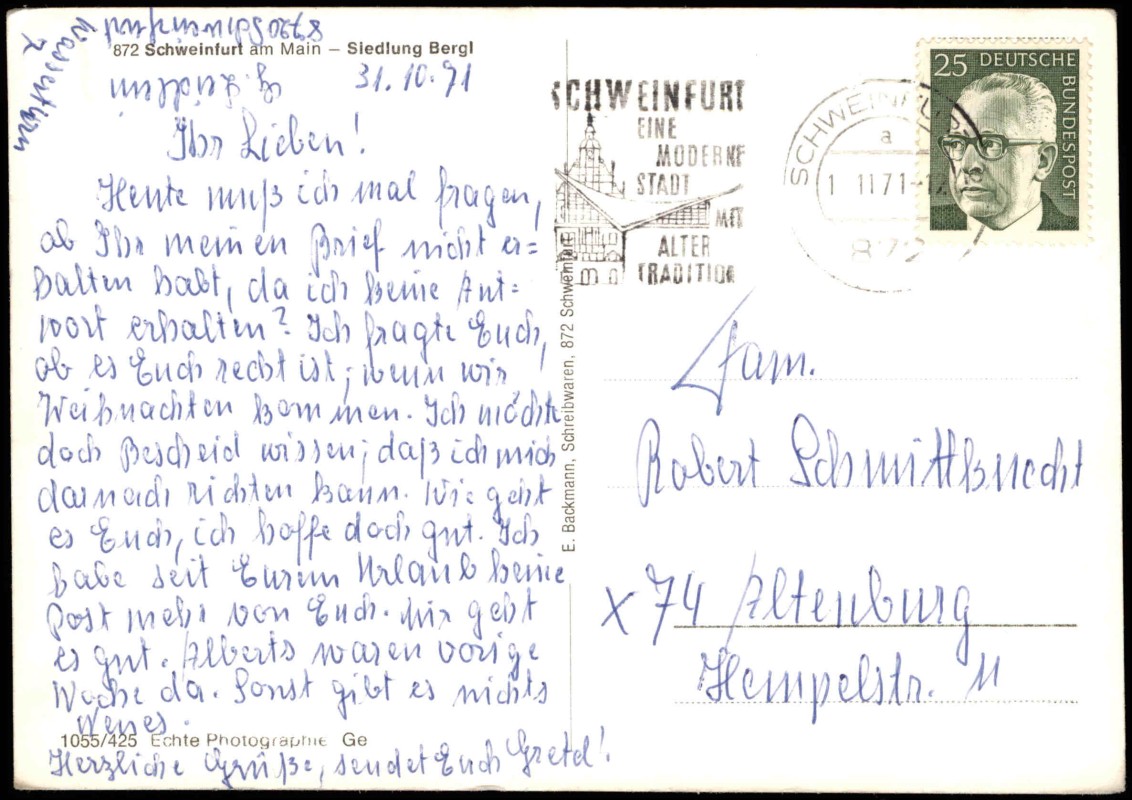 8720 Schweinfurt
Wasserturm
7
872 Schweinfurt am Main – Siedlung Bergl
31.10.71
Ihr Lieben!
Heute muß ich mal fragen,
ob Ihr meinen Brief nicht er=
halten habt, da ich keine Ant=
wort erhalten? Ich fragte Euch,
ob es Euch recht ist, wenn wir
Weihnachten kommen. Ich möchte
doch Bescheid wissen, daß ich mich
darnach richten kann. Wie geht
es Euch, ich hoffe doch gut. Ich
habe seit Eurem Urlaub keine
Post mehr von Euch. Mir geht
es gut. Alberts waren vorige
Woche da. Sonst gibt es nichts
Neues.
1055/425 Echte Photographie Ge
Herzliche Grüße, sendet Euch Gretel!
E. Backmann, Schreibwaren, 872 Schweinfurt
SCHWEINFURT
EINE
MODERNE
STADT
MIT
ALTER
TRADITION
SCHWEINFURT
a
1 1171-12
872
25 DEUTSCHE
BUNDESPOST
Fam.
Robert Schmittknecht
x 74 Altenburg
Hempelstr. 11